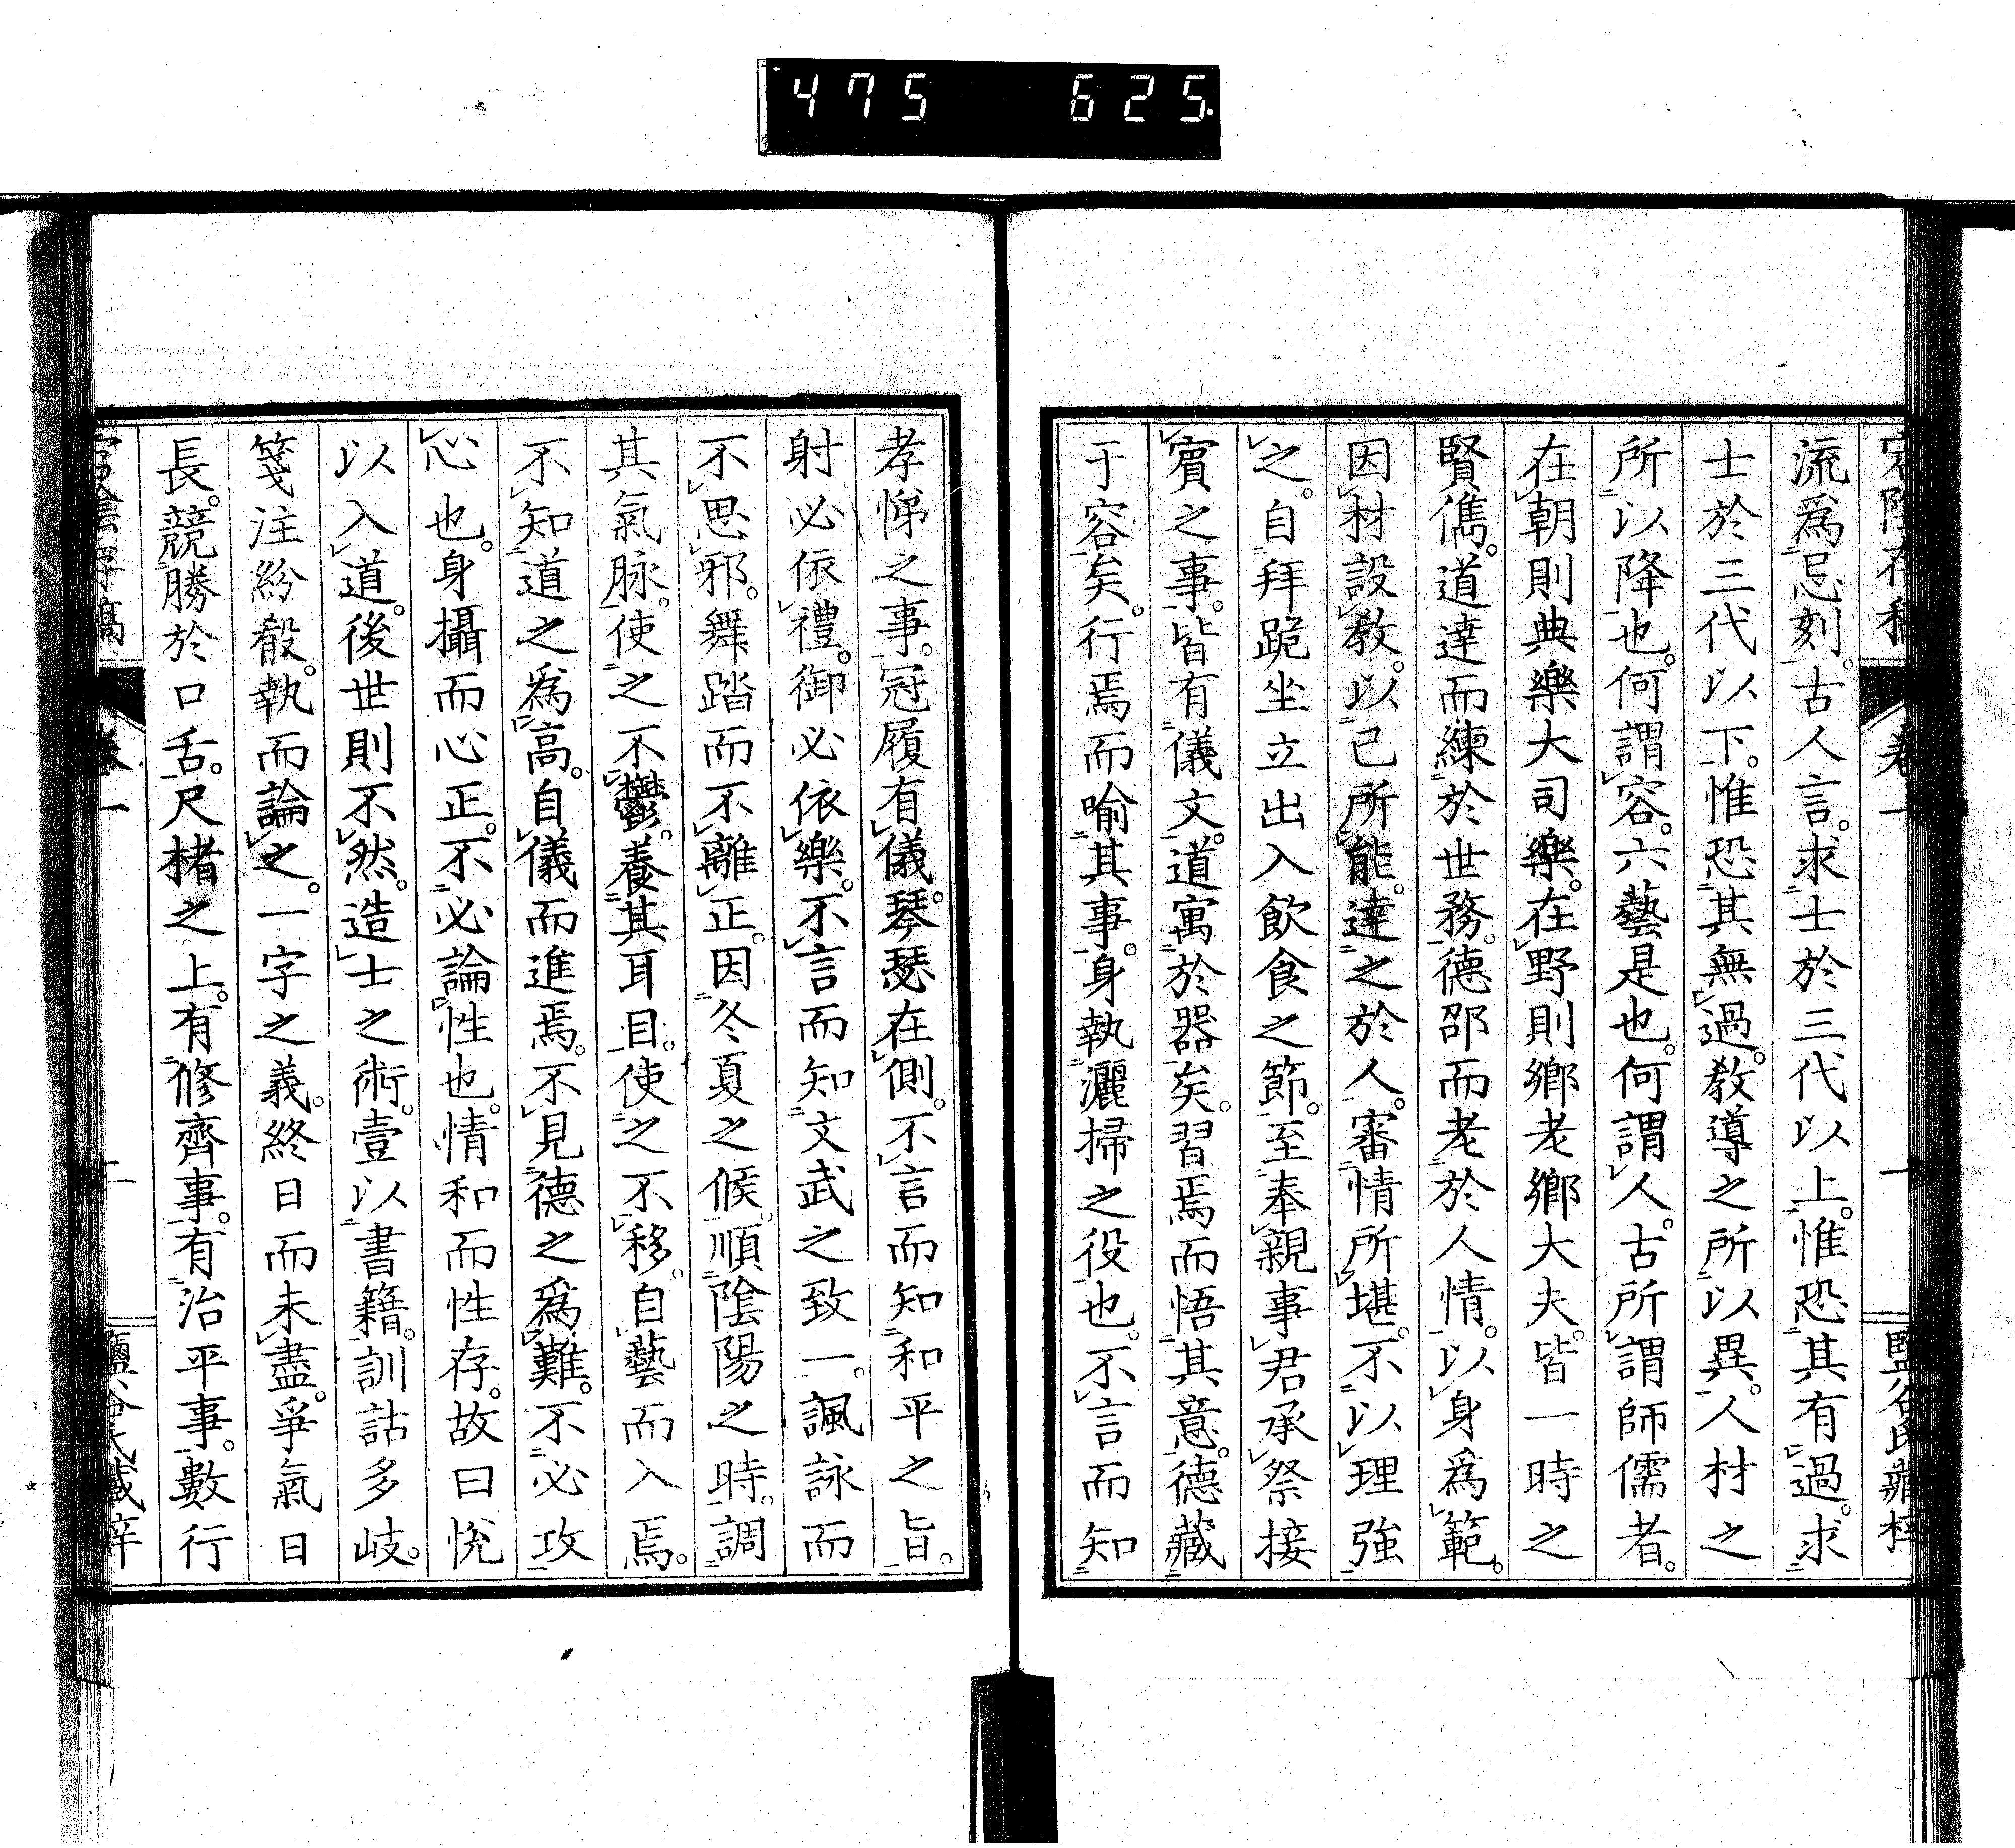 475 625
宕陰存稿 卷一 一 鹽谷氏藏梓
流爲忌刻。古人言。求士於三代以上。惟恐其有過。求
士於三代以下。惟恐其無過。敎導之所以異。人材之
所以降也。何謂容。六藝是也。何謂人。古所謂師儒者。
在朝則典樂大司樂。在野則鄕老鄕大夫。皆一時之
賢儁。道達而練於世務。德邵而老於人情。以身爲範。
因材設敎。以己所能。達之於人。審情所堪。不以理強
之。自拜跪坐立出入飮食之節。至奉親事君承祭接
賓之事。皆有儀文。道寓於器矣。習焉而悟其意。德藏
于容矣。行焉而喻其事。身執灑掃之役也。不言而知
孝悌之事。冠履有儀。琴瑟在側。不言而知和平之旨。
射必依禮。御必依樂。不言而知文武之致一。諷詠而
不思邪。舞踏而不離正。因冬夏之候。順陰陽之時。調
其氣脉。使之不鬱。養其耳目。使之不移。自藝而入焉。
不知道之爲高。自儀而進焉。不見德之爲難。不必攻
心也。身攝而心正。不必論性也。情和而性存。故曰悅
以入道。後世則不然。造士之術。壹以書籍。訓詁多岐。
箋注紛殽。執而論之。一字之義。終日而未盡。爭氣日
長。競勝於口舌。尺楮之上。有修齊事。有治平事。數行
宕陰存稿 卷一 二 鹽谷氏藏梓